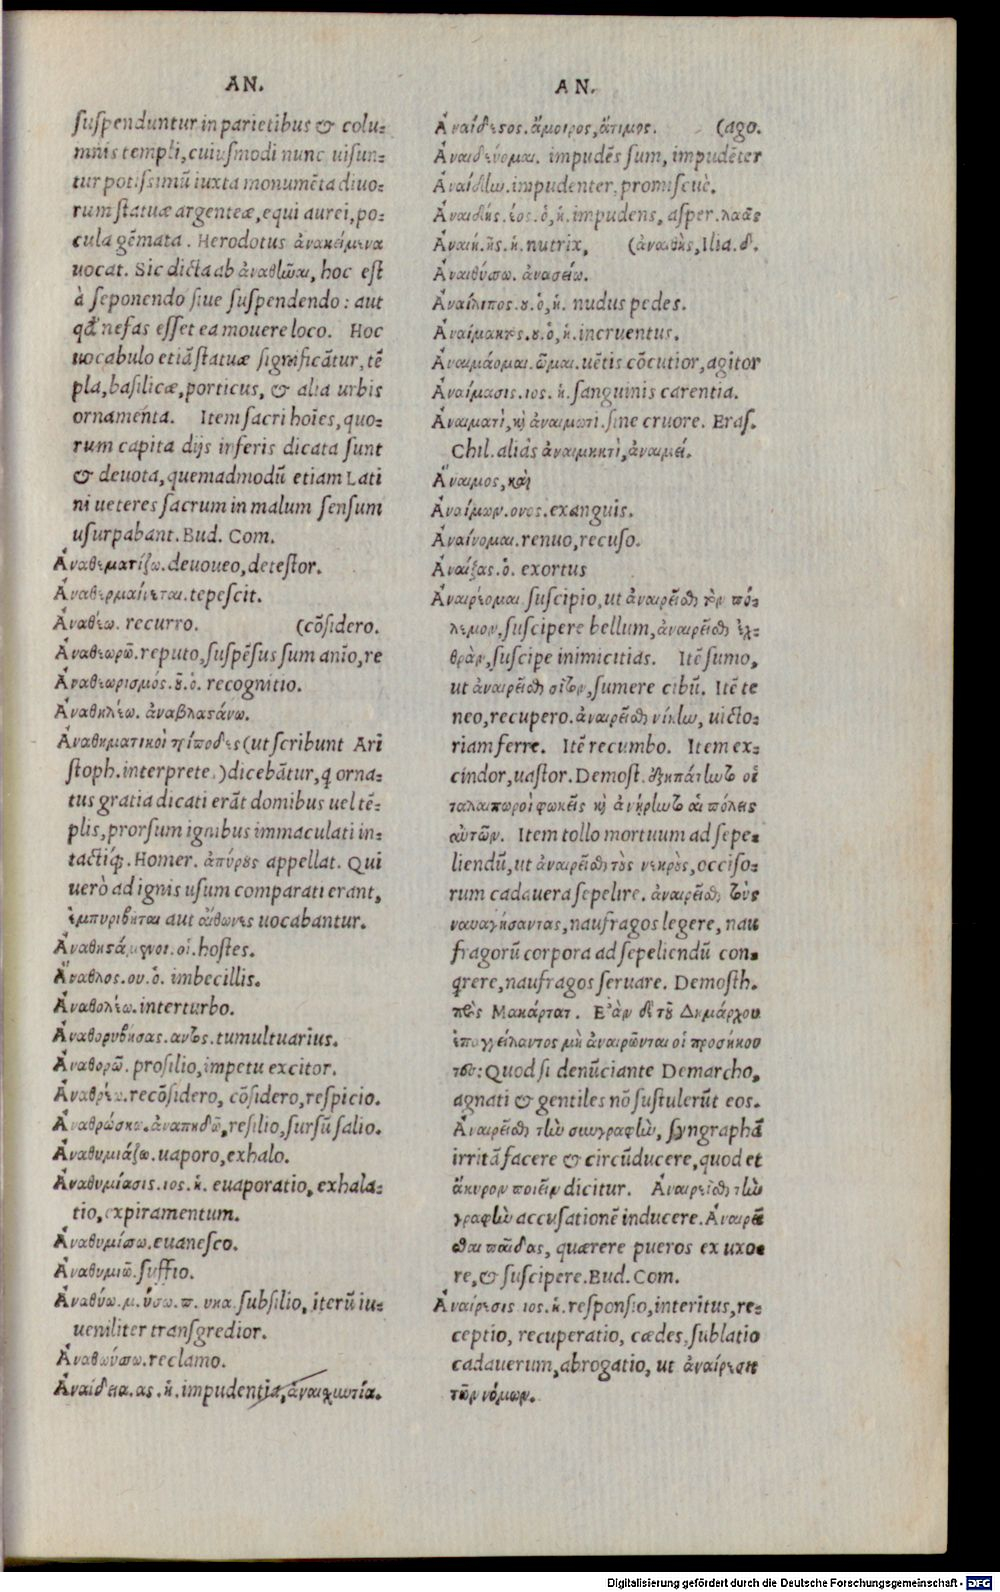 AN.
suspenduntur in parietibus & colu-
mnis templi, cuiusmodi nunc uisun-
tur potissimũ iuxta monumẽta diuo-
rum statuæ argenteæ, equi aurei, po-
cula gẽmata. Herodotus ἀνακείμενα
uocat. Sic dicta ab ἀναθῶναι, hoc est
à seponendo siue suspendendo: aut
qđ nefas esset ea mouere loco. Hoc
uocabulo etiã statuæ significãtur, tẽ
pla, basilicæ, porticus, & alia urbis
ornamenta. Item sacri hoĩes, quo-
rum capita dijs inferis dicata sunt
& deuota, quemadmodũ etiam Lati
ni ueteres sacrum in malum sensum
usurpabant. Bud. Com.
Ἀναθεματίζω. deuoueo, detestor.
Ἀναθερμαίνεται. tepescit.
Ἀναθέω. recurro. (cõsidero.
Ἀναθεωρῶ. reputo, suspẽsus sum anĩo, re
Ἀναθεωρισμός. οῦ. ὁ. recognitio.
Ἀναθηλέω. ἀναβλαςάνω.
Ἀναθηματικοὶ τρίποδες (ut scribunt Ari
stoph. interprete.) dicebãtur, q̃ orna-
tus gratia dicati erãt domibus uel tẽ-
plis, prorsum ignibus immaculati in-
tactiq̃. Homer. ἀπύρους appellat. Qui
uerò ad ignis usum comparati erant,
ἐμπυριβῆται aut αἴθωνες uocabantur.
Ἀναθησάμενοι. οἱ. hostes.
Ἄναθλος. ου. ὁ. imbecillis.
Ἀναθολέω. interturbo.
Ἀναθορυβήσας. αντος. tumultuarius.
Ἀναθορῶ. prosilio, impetu excitor.
Ἀναθρέω. recõsidero, cõsidero, respicio.
Ἀναθρώσκω. ἀναπηδῶ, resilio, sursũ salio.
Ἀναθυμιάζω. uaporo, exhalo.
Ἀναθυμίασις. ιος. ἡ. euaporatio, exhala-
tio, expiramentum.
Ἀναθυμίσω. euanesco.
Ἀναθυμιῶ. suffio.
Ἀναθύω. μ. ύσω. π. υκα. subsilio, iterũ iu-
ueniliter transgredior.
Ἀναθωύσσω. reclamo.
Ἀναίδεια. ας. ἡ. impudentia, ἀναισχυντία.
AN.
Ἀναίδεςος. ἄμοιρος, ἄτιμος. (ago.
Ἀναιδεύομαι. impudẽs sum, impudẽter
Ἀναίδην. impudenter, promiscuè.
Ἀναιδής. έος. ὁ, ἡ. impudens, asper. λαᾶς
Ἀναιή. ῆς. ἡ. nutrix, (ἀναιδὴς, Ilia. δ.
Ἀναιθύσσω. ἀνασείω.
Ἀναίλιπος. ου. ὁ, ἡ. nudus pedes.
Ἀναίμακτος. ου. ὁ, ἡ. incruentus.
Ἀναιμάομαι. ῶμαι. uẽtis cõcutior, agitor
Ἀναίμασις. ιος. ἡ. sanguinis carentia.
Ἀναιματὶ, καὶ ἀναιμωτί. sine cruore. Eras.
Chil. aliàs ἀναιμηκτὶ, ἀναιμεί.
Ἄναιμος, καὶ
Ἀναίμων. ονος. exanguis.
Ἀναίνομαι. renuo, recuso.
Ἀναίξας. ὁ. exortus
Ἀναιρέομαι. suscipio, ut ἀναιρεῖσθαι τὸν πό-
λεμον, suscipere bellum, ἀναιρεῖσθαι ἐχ-
θρὰν, suscipe inimicitias. Itẽ sumo,
ut ἀναιρεῖσθαι σῖτον, sumere cibũ. Itẽ te
neo, recupero. ἀναιρεῖσθαι νίκην, uicto-
riam ferre. Itẽ recumbo. Item ex-
cindor, uastor. Demost. ἐξηπάτηντο οἱ
ταλαιπωροὶ φωκεῖς καὶ ἀνῄρηντο αἱ πόλεις
αὐτῶν. Item tollo mortuum ad sepe-
liendũ, ut ἀναιρεῖσθαι τοὺς νεκροὺς, occiso-
rum cadauera sepelire. ἀναιρεῖσθαι τοὺς
ναυαγήσαντας, naufragos legere, nau
fragorũ corpora ad sepeliendũ con-
q̃rere, naufragos seruare. Demosth.
πρὸς Μακάρτατ. Ἐὰν δὲ τοῦ Δημάρχου
ἐπαγγείλαντος μὴ ἀναιρῶνται οἱ προσήκον
τες: Quod si denũciante Demarcho,
agnati & gentiles nõ sustulerũt eos.
Ἀναιρεῖσθαι τὴν συγγραφὴν, syngraphã
irritã facere & circũducere, quod et
ἄκυρον ποιεῖν dicitur. Ἀναιρεῖσθαι τὴν
γραφὴν accusationẽ inducere. Ἀναιρεῖ
σθαι παῖδας, quærere pueros ex uxo-
re, & suscipere. Bud. Com.
Ἀναίρεσις. ιος. ἡ. responsio, interitus, re-
ceptio, recuperatio, cædes, sublatio
cadauerum, abrogatio, ut ἀναίρεσις
τῶν νόμων.
Digitalisierung gefördert durch die Deutsche Forschungsgemeinschaft - DFG